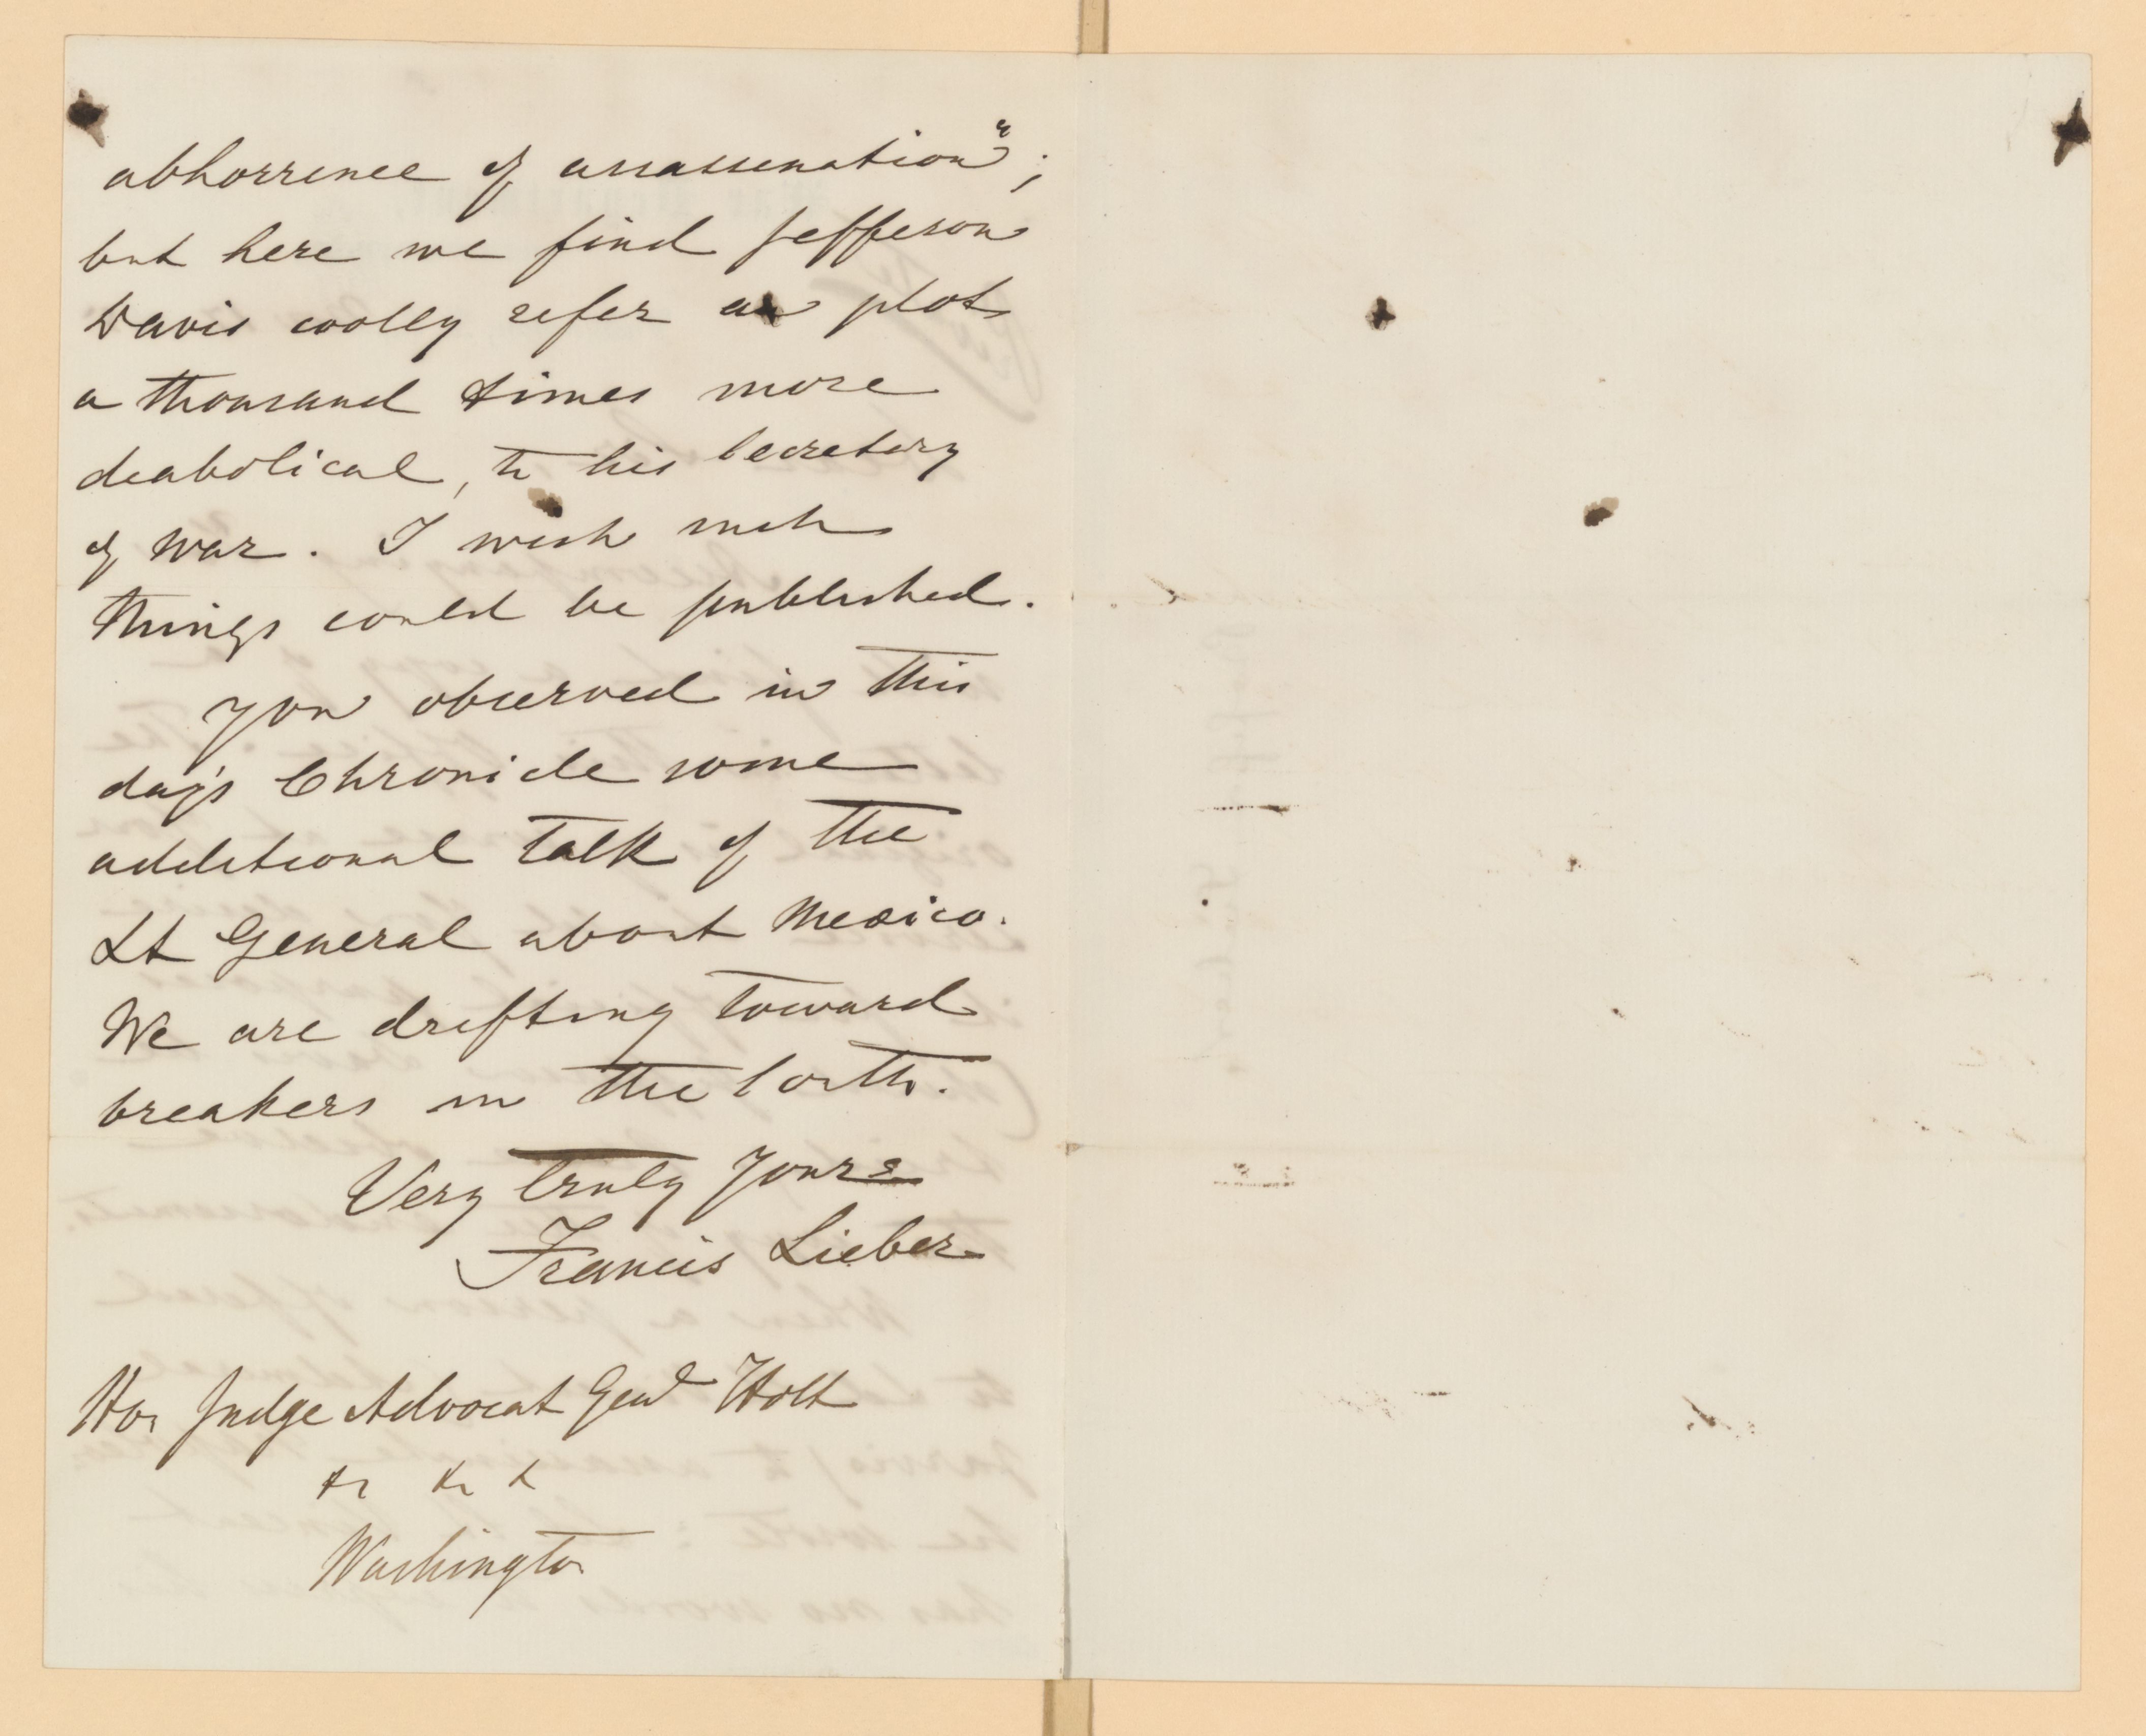 abhorrence of assassination";
but here we find Jefferson
Davis coolly refer a plot
a thousand times more
diabolical, to his Secretary
of War. I wish such
things could be published.
You observed in this
day's Chronicle some
additional talk of the
Lt General about Mexico.
We are drifting toward
breakers in the South.
Very truly yours
Francis Lieber
Hon Judge Advocat Genl Holt
&c &c &
Washington